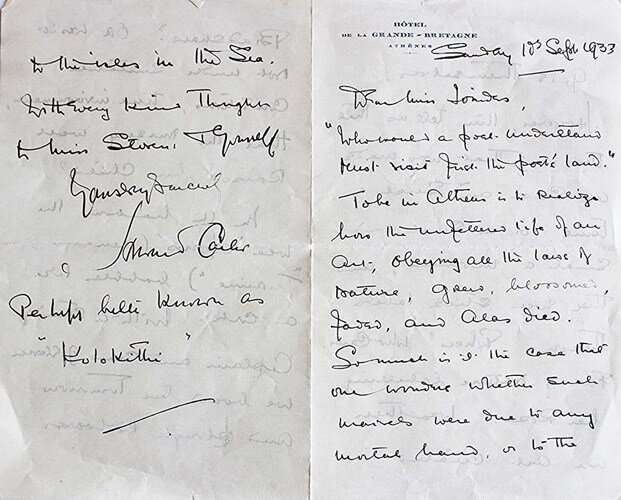 HÔTEL
DE LA GRANDE-BRETAGNE
ATHÈNES
Sunday Sept 1933
Dear Miss
"Who would a poet understand
Must visit first the poet's land."
To be in Athens is to realize
how the unfettered life of an
Art, obeying all the laws of
Nature, grew, blossomed,
faded, and alas died.
So much is it the case that
one wonders whether such
marvels were due to any
mortal hand, or to the
to the isles in the Sea.
With very kind thoughts
to Miss yourself
Yours very sincerely
Howard Carter
Perhaps better known as
"Kolokithi"